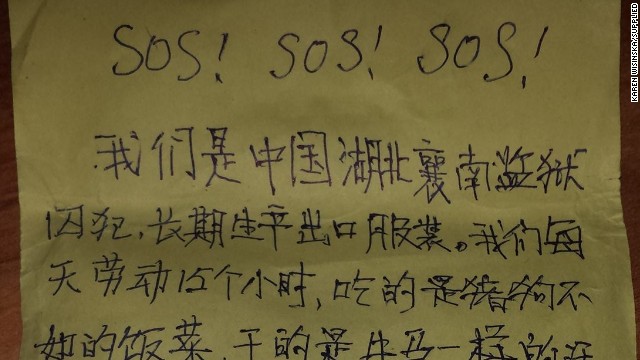 SOS! SOS! SOS!
我们是中国湖北襄南监狱
囚犯,长期生产出口服装。我们每
天劳动15个小时,吃的是猪狗不
如的饭菜,干的是牛马一样的活
KAREN WISINSKA/SUPPLIED